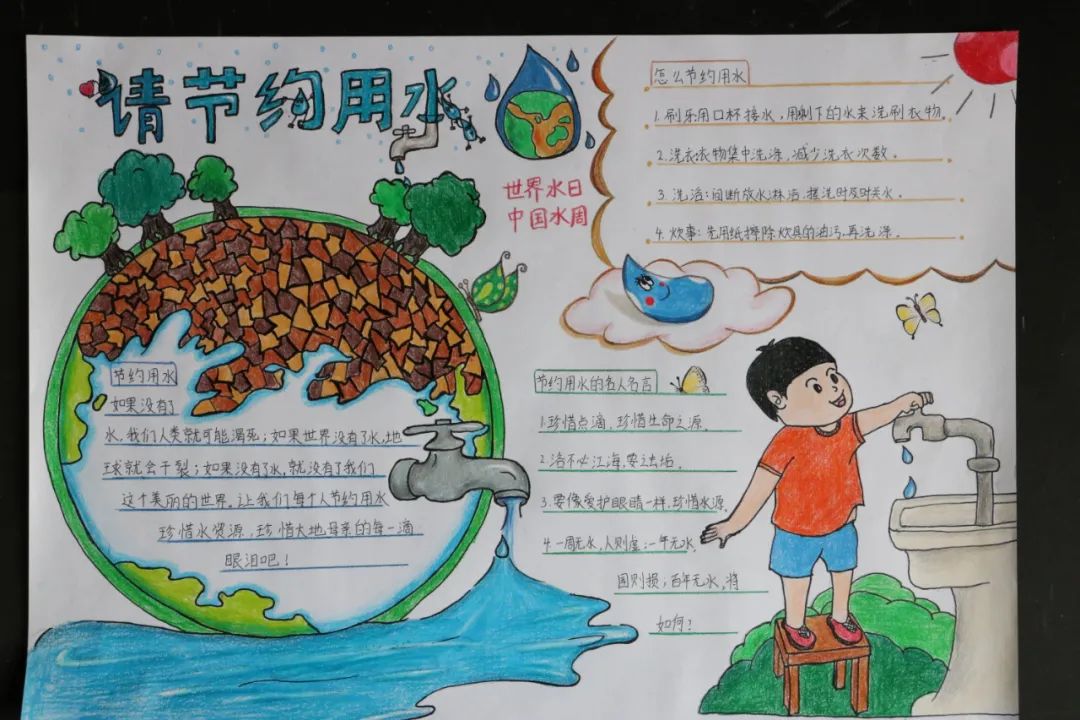 请节约用水
世界水日
中国水周
怎么节约用水
1.刷牙:用口杯接水,用剩下的水来洗刷衣物.
2.洗衣:衣物集中洗涤,减少洗衣次数。
3.洗浴:间断放水淋浴.搓洗时及时关水。
4.炊事:先用纸擦除炊具的油污.再洗涤。
节约用水
如果没有了
水,我们人类就可能渴死;如果世界没有了水,地
球就会干裂;如果没有了水,就没有了我们
这个美丽的世界。让我们每个人节约用水
珍惜水资源,珍惜大地母亲的每一滴
眼泪吧!
节约用水的名人名言
1.珍惜点滴,珍惜生命之源。
2.浴不必江海,要之去垢。
3.要像爱护眼睛一样,珍惜水源.
4.一周无水,人则虚;一年无水,
国则损;百年无水,将
如何?